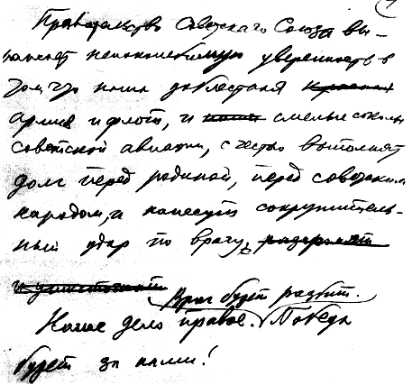 Правительство Советского Союза вы-
ражает непоколебимую уверенность в
том, что наша доблестная красная
армия и флот, и наши смелые соколы
советской авиации, с честью выполнят
долг перед родиной, перед советским
народом, и нанесут сокрушитель-
ный удар по врагу,
Враг будет разбит.
Наше дело правое. Победа
будет за нами!